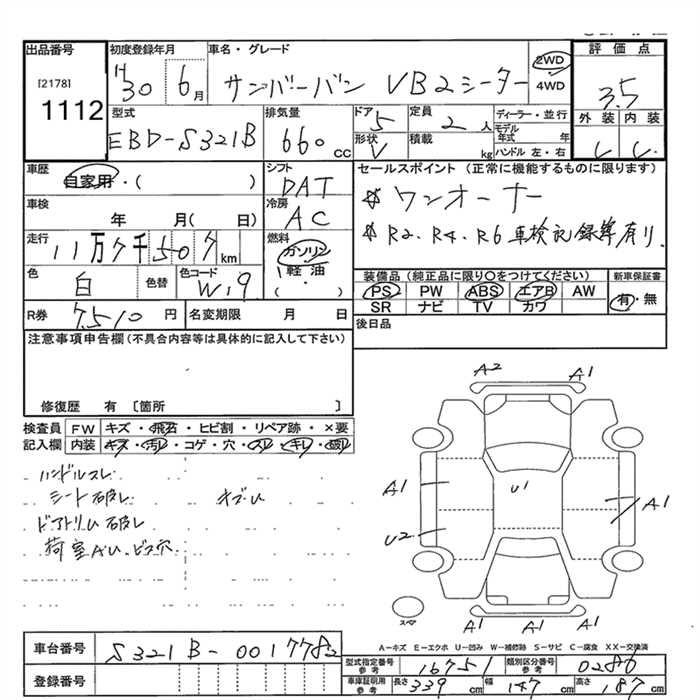 出品番号
[2178]
1112
初度登録年月
H30年 6月
車名・グレード
サンバーバン VB2シーター
2WD
4WD
評価点
3.5
外装 内装
C C
型式
EBD-S321B
排気量
660 cc
ドア 5
形状 V
定員 2 人
積載 kg
ディーラー・並行
モデル年式 年
ハンドル 左・右
車歴
自家用・( )
シフト
DAT
車検
年 月( 日)
冷房
AC
走行
11万7千507km
燃料
ガソリン
軽油
( )
色
白
色替
色コード
W19
R券
7,510 円
名変期限 月 日
セールスポイント (正常に機能するものに限ります)
☆ ワンオーナー
☆ R2、R4、R6車検記録簿有り
装備品(純正品に限り〇をつけてください)
新車保証書
PS PW ABS エアB AW
SR ナビ TV カワ
有・無
後日品
注意事項申告欄(不具合内容等は具体的に記入して下さい)
修復歴 有 [箇所 ]
検査員 FW キズ・飛石・ヒビ割・リペア跡・×要
記入欄 内装 キズ・汚レ・コゲ・穴・スレ・キレ・破レ
ハンドルスレ
シート破レ キズU
ドアトリム破レ
荷室AU、ビス穴
A2 A1
A1 U1 A1
U2
A1 A1
スペア
A-キズ E-エクボ U-凹み W-補修跡 S-サビ C-腐食 XX-交換済
車台番号 S321B-0017782
登録番号
型式指定番号 参考 16751
類別区分番号 参考 0286
車庫証明用 参考 長さ 339 cm 幅 147 cm 高さ 187 cm